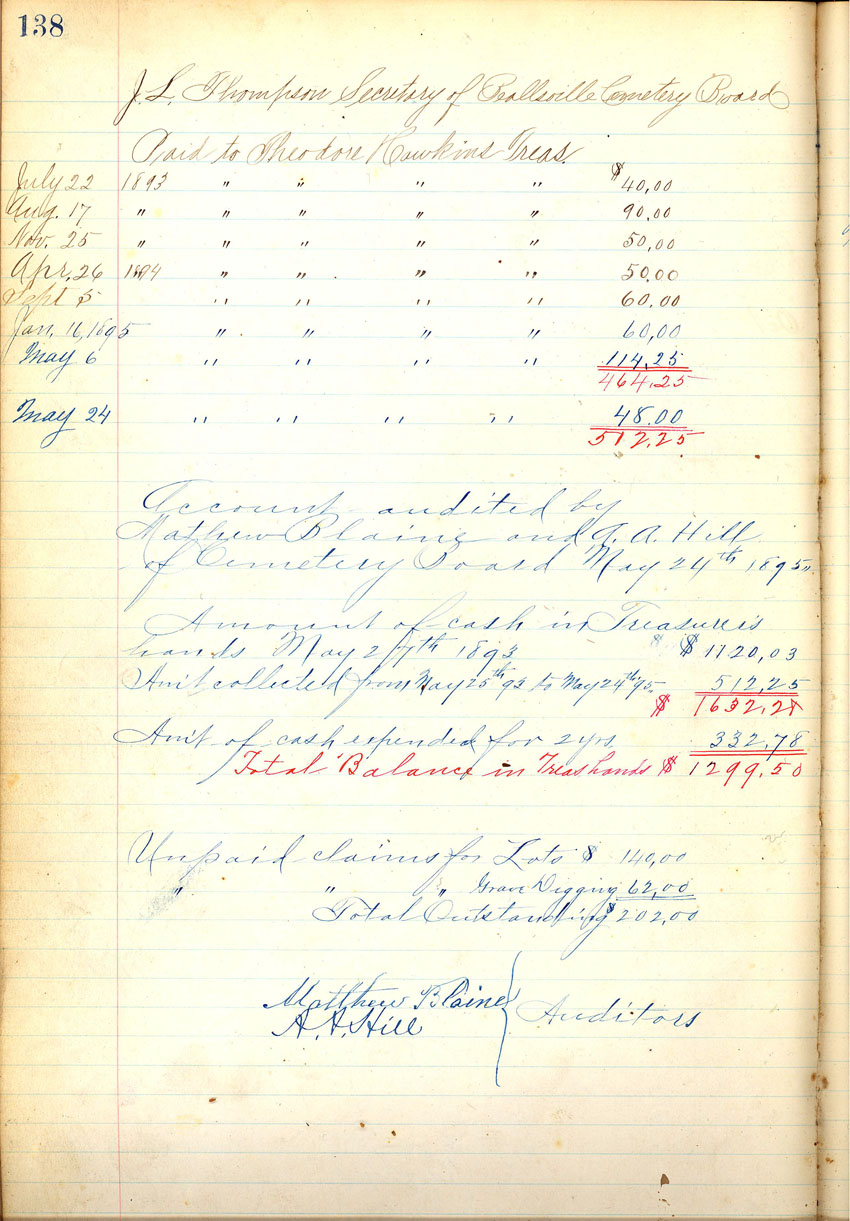 138
J. L. Thompson Secretary of Beallsville Cemetery Board
Paid to Theodore Hawkins Treas.
July 22 1893 " " " " $40,00
Aug. 17 " " " " " 90.00
Nov. 25 " " " " " 50,00
Apr. 26 1894 " " " " 50.00
Sept 5 " " " " 60.00
Jan. 16, 1895 " " " " 60,00
May 6 " " " " 114,25
464,25
May 24 " " " " 48.00
512,25
Account audited by
Mathew Blaine and A. A. Hill
of Cemetery Board May 24th 1895
Amount of cash in Treasure's
hands May 27th 1893 $1120,03
Am't collected from May 25th 93 to May 24th 95 512,25
$ 1632,28
Am't of cash expended for 2 yrs 332,78
Total Balance in Treas hands $ 1299,50
Unpaid claims for Lots $ 140,00
" " " Grave Digging 62,00
Total Outstanding $202,00
Matthew Blaine
A. A. Hill
Auditors